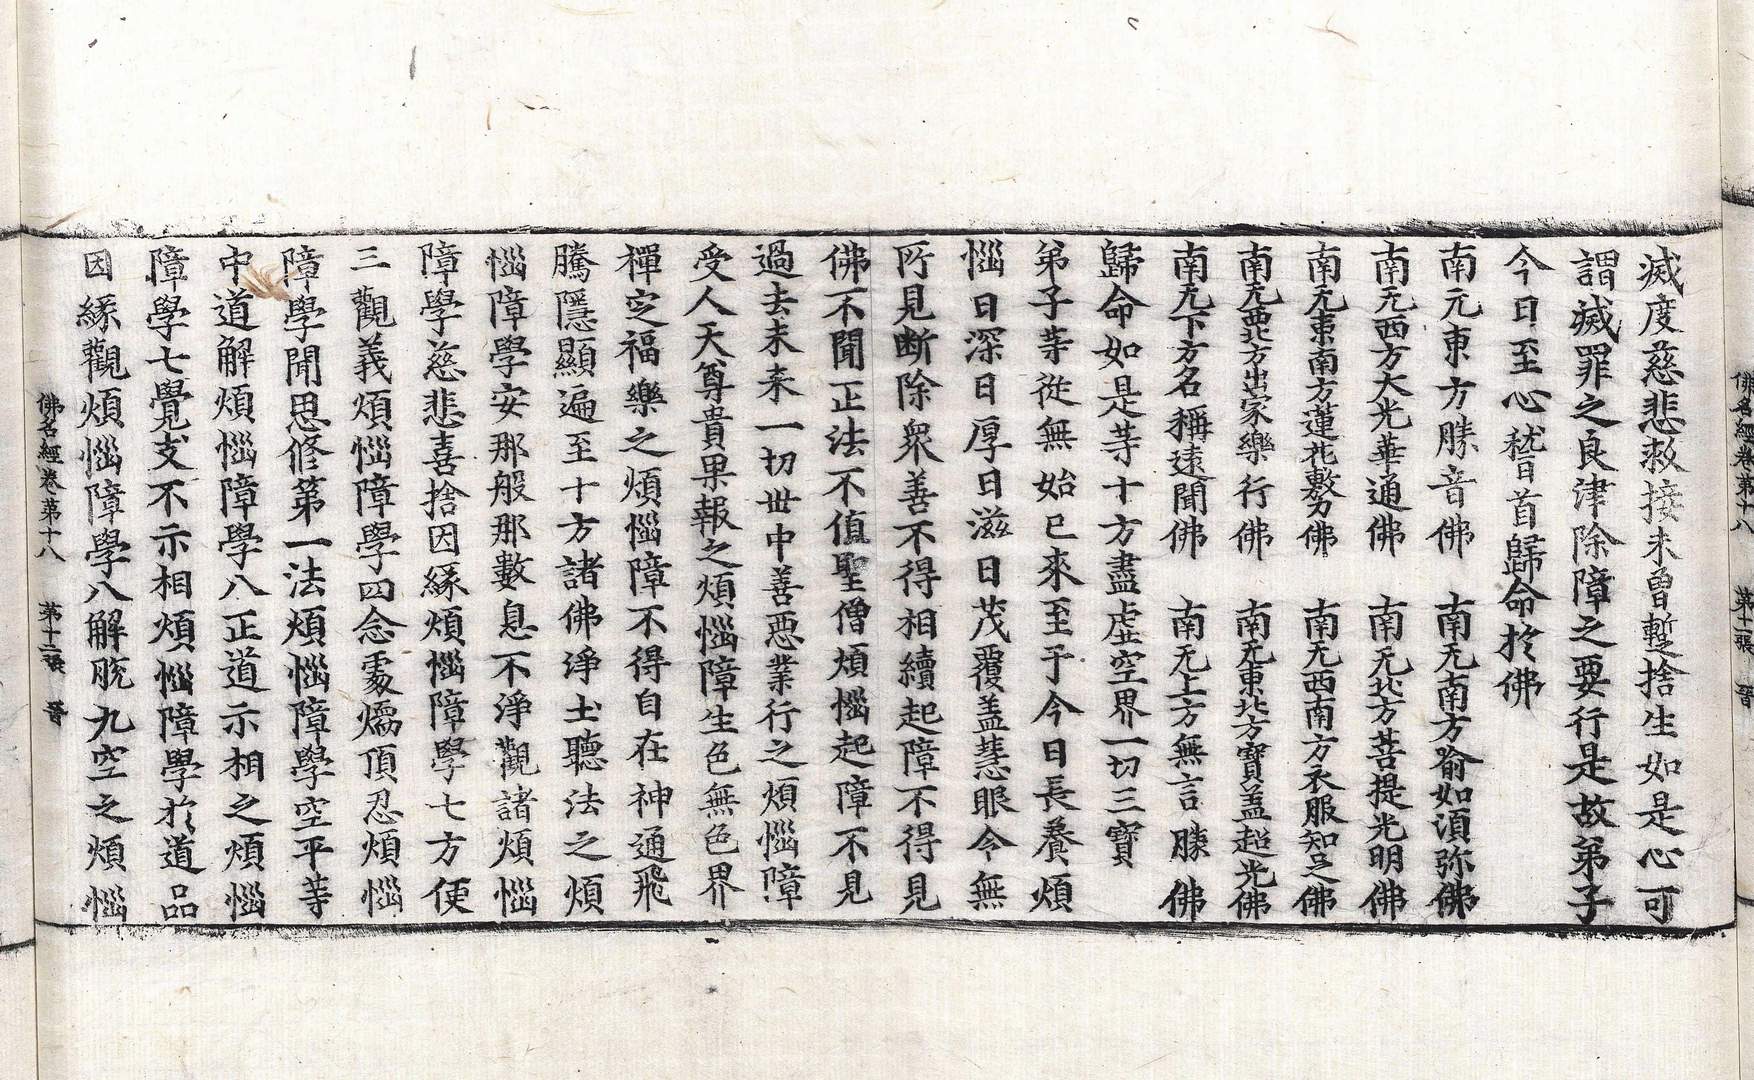 佛名經卷第十八 第十一張 晉
滅度慈悲救接未曾蹔捨生如是心可
謂滅罪之良津除障之要行是故弟子
今日至心稽首歸命於佛
南无東方勝音佛 南无南方喻如湏弥佛
南无西方大光華通佛 南无北方菩提光明佛
南无東南方蓮花敷力佛 南无西南方衣服知足佛
南无西北方出家樂行佛 南无東北方寶盖超光佛
南无下方名稱遠聞佛 南无上方無言勝佛
歸命如是等十方盡虛空界一切三寶
弟子等從無始已來至于今日長養煩
惱日深日厚日滋日茂覆盖慧眼令無
所見斷除衆善不得相續起障不得見
佛不聞正法不值聖僧煩惱起障不見
過去未来一切世中善惡業行之煩惱障
受人天尊貴果報之煩惱障生色無色界
禪定福樂之煩惱障不得自在神通飛
騰隱顯遍至十方諸佛淨土聽法之煩
惱障學安那般那數息不淨觀諸煩惱
障學慈悲喜捨因緣煩惱障學七方便
三觀義煩惱障學四念䖏燸頂忍煩惱
障學聞思修第一法煩惱障學空平等
中道解煩惱障學八正道示相之煩惱
障學七覺支不示相煩惱障學於道品
因緣觀煩惱障學八解脫九空之煩惱
佛名經卷第十八 第十二張 晉